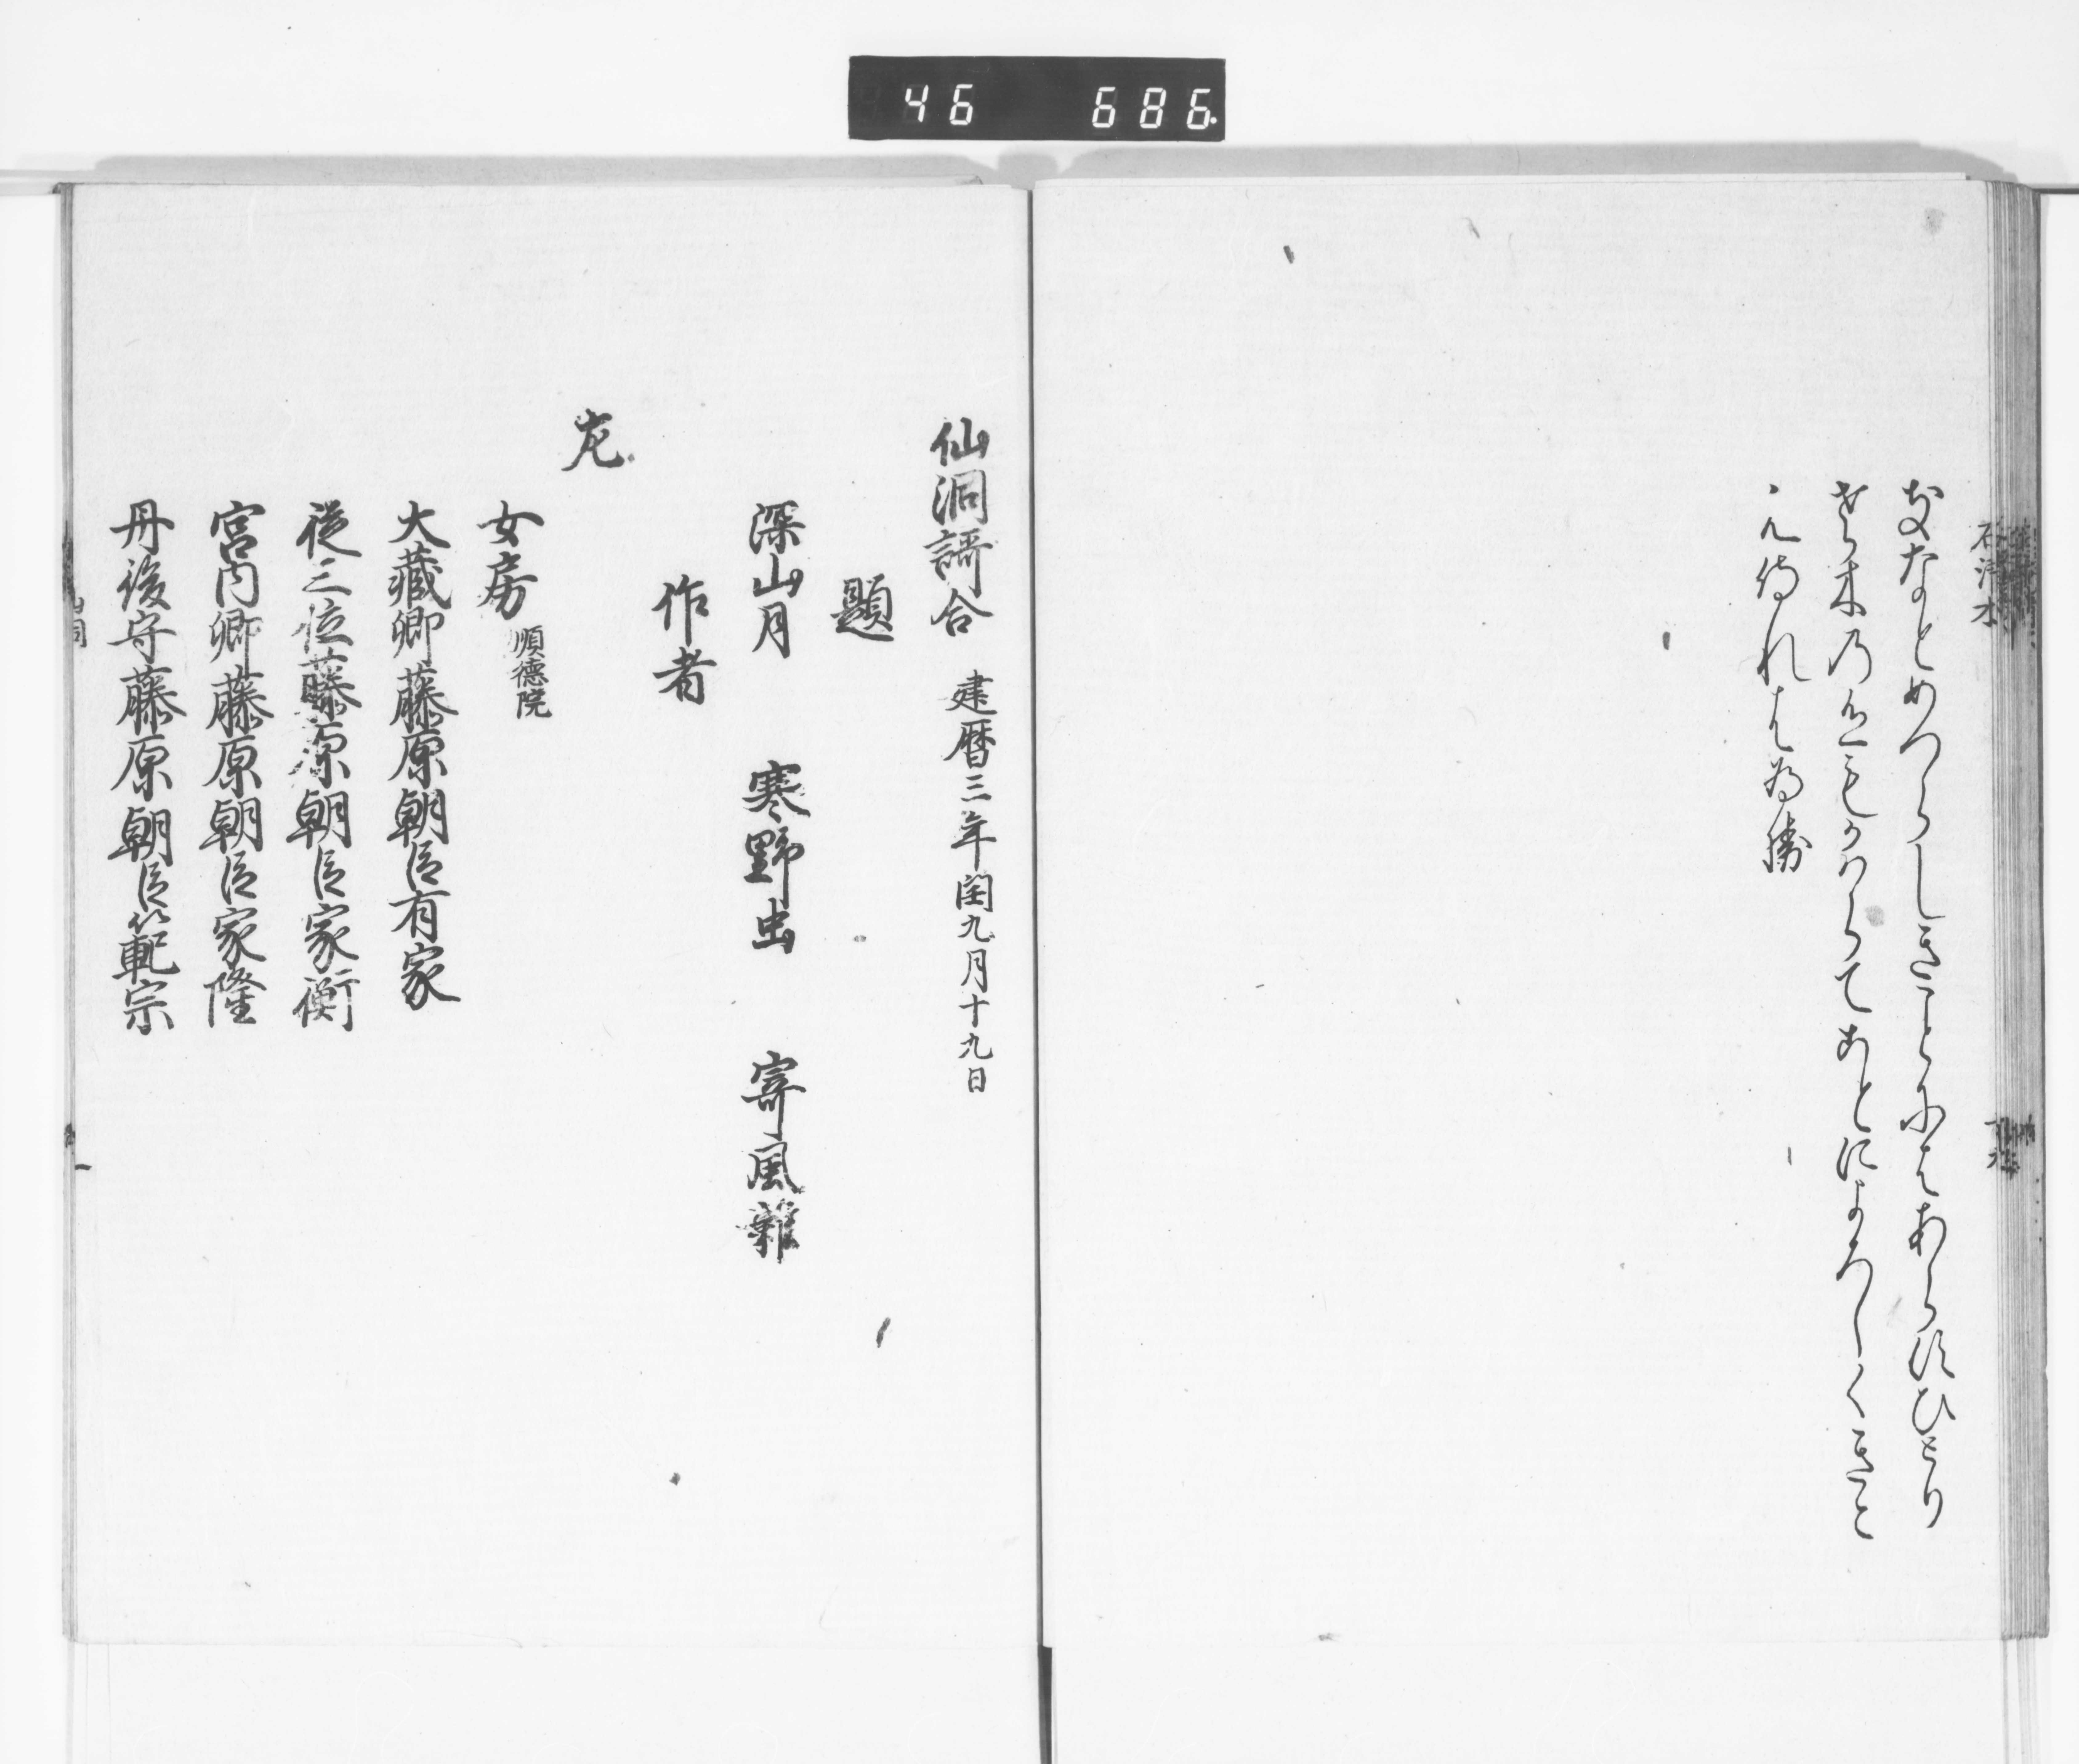 46 686
石清水
なとめつらしきことにはあらすひとり
木乃色もかはらてことによろしくきこ
え侍れは為勝
仙洞謌合 建暦三年閏九月十九日
題
深山月 寒野虫 寄風雜
作者
左
女房 順徳院
大藏卿藤原朝臣有家
從三位藤原朝臣家衡
宮内卿藤原朝臣家隆
丹後守藤原朝臣範宗